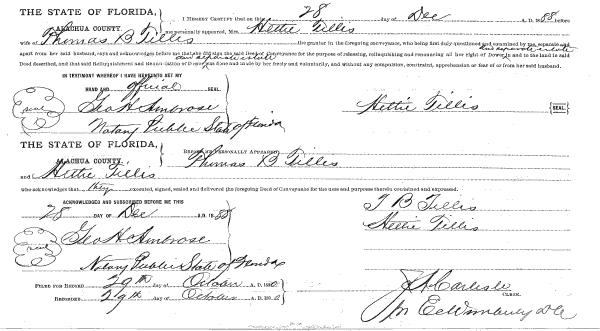 THE STATE OF FLORIDA, I HEREBY CERTIFY that on this 28 day of Dec A. D. 1888 before
ALACHUA COUNTY. me personally appeared, Mrs. Hettie Tillis
wife of Thomas B Tillis the grantor in the foregoing conveyance, who being first duly questioned and examined by me, separate and
and separate estate
apart from her said husband, says and acknowledges before me that she did sign the said Deed of Conveyance for the purpose of releasing, relinquishing and renouncing all her right of Dower in and to the land in said
and separate estate
Deed described, and that said Relinquishment and Renunciation of Dower was done and made by her freely and voluntarily, and without any compulsion, constraint, apprehension or fear of or from her said husband.
IN TESTIMONY WHEREOF I HAVE HEREUNTO SET MY
HAND AND official SEAL
seal Geo H Ambrose Hettie Tillis SEAL.
Notary Public State of Florida
THE STATE OF FLORIDA,
ALACHUA COUNTY. BEFORE ME PERSONALLY APPEARED Thomas B Tillis
and Hettie Tillis
who acknowledges that they executed, signed, sealed and delivered the foregoing Deed of Conveyance for the uses and purposes therein contained and expressed.
ACKNOWLEDGED AND SUBSCRIBED BEFORE ME THIS
28 DAY OF Dec A.D. 1888 T B Tillis
seal Geo H Ambrose Hettie Tillis
Notary Public State of Florida
FILED FOR RECORD 29th day of October A.D. 1890
RECORDED 29th day of October A.D. 1890
J A Carlisle
CLERK.